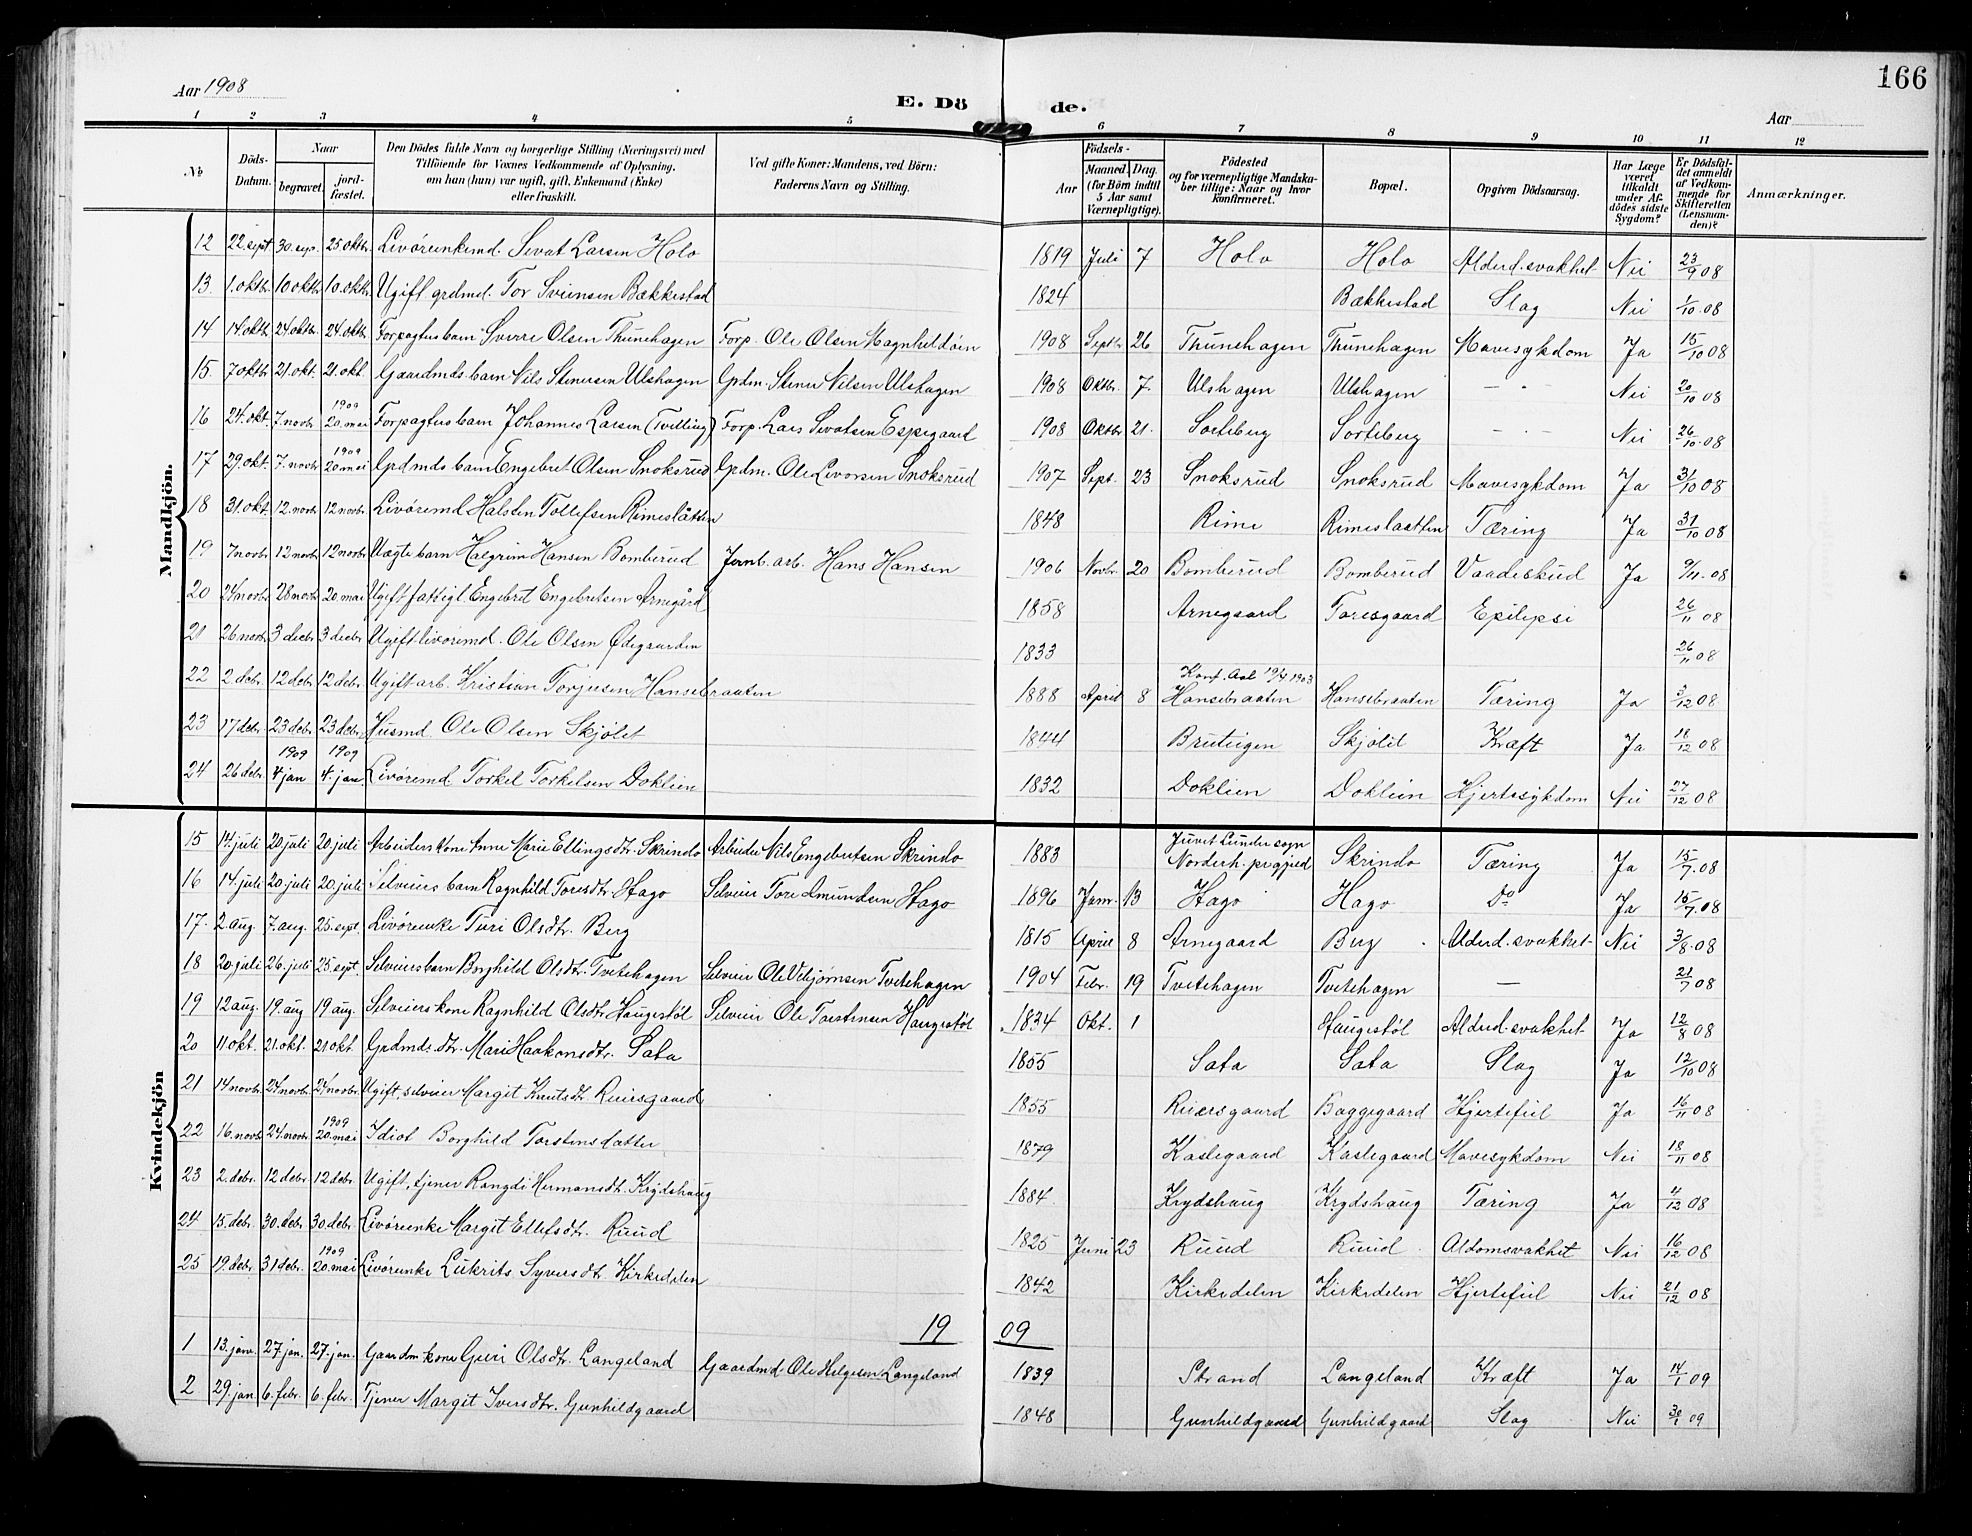 166
Aar 1908
E. Dö de.
Aar
1 2 3 4 5 6 7 8 9 10 11 12
№ | Döds-Datum. | Naar begravet. | jordfæstet. | Den Dödes fulde Navn og borgerlige Stilling (Næringsvei) med Tilföiende for Voxnes Vedkommende af Oplysning, om han (hun) var ugift, gift, Enkemand (Enke) eller fraskilt. | Ved gifte Koner: Mandens, ved Börn: Faderens Navn og Stilling. | Födsels- Aar | Maaned Dag. (for Börn indtil 5 Aar samt Værnepligtige). | Födested og for værnepligtige Mandskaber tillige: Naar og hvor konfirmeret. | Bopæl. | Opgiven Dödsaarsag. | Har Læge været tilkaldt under Afdödes sidste Sygdom? | Er Dödsfaldet anmeldt af Vedkommende for Skifteretten (Lensmanden)? | Anmærkninger.
Mandkjön.
12 22. sept 30 sep. 25 oktbr Livørenkemd. Sevat Larsen Holo 1819 Juli 7 Holo Holo Alderd. svakhet Nei 23/9 08
13. 1. oktbr 10 oktbr 10. oktbr Ugift grdmd. Tor Svensen Bækkestad 1824 Bækkestad Slag Nei 1/10 08
14 14. oktb. 24 oktbr 24. oktbr Forpagters barn Sverre Olsen Thunehagen Forp. Ole Olsen Magnhildøen 1908 Septbr 26 Thunehagen Thunehagen Mavesykdom Ja 15/10 08
15. 7 oktbr 21. okt. 21. okt Gaardmds. barn Nils Stenersen Ulshagen Grdm. Stener Nilsen Ulshagen 1908 Oktbr. 7. Ulshagen Ulshagen - - Nei 20/10 08
16 24. okt. 7. novbr 1909 20. mai Forpagters barn Johannes Larsen (Tvilling) Forp. Lars Sevatsen Espegaard 1908 Oktbr 21. Sorteberg Sorteberg - - Nei 26/10 08
17 29. okt. 7. novbr 1909 20 mai Grdmds barn Engebret Olsen Snoksrud Grdm. Ole Livorsen Snoksrud 1907 Sept. 23 Snoksrud Snoksrud Mavesykdom Ja 31/10 08
18 31. okt. 12. novbr 12 novbr Livøremd Halsten Tollefsen Rimeslåtten 1848 Rime Rimeslaatten Tæring Ja 31/10 08
19 7 novbr 12 novbr 12 novbr Uægte barn Halgrim Hansen Bomberud Jernb. arb. Hans Hansen 1906 Novbr. 20 Bomberud Bomberud Vaadeskud Ja 9/11 08
20 24 novbr 28 novbr 20. mai Ugift fattigl. Engebret Engebretsen Arnegård 1858 Arnegaard Toresgaard Epilepsi 26/11 08
21 26 novbr 3 decbr 3 decbr Ugift livøremd. Ole Olsen Ødegaarden 1833 26/11 08
22 2 debr. 12 debr 12 debr. Ugift arb. Kristian Torjusen Hansebraaten 1888 April 8 Konf. Aal 19/4 1903 Hansebraaten Hansebraaten Tæring Ja 3/12 08
23 17 debr. 23 debr 23 debr. Husmd. Ole Olsen Skjølet 1844 Bruteigen Skjølet Kræft Ja 18/12 08
24 26 debr. 1909 4 jan 1909 4. jan Livøremd. Torkel Torkelsen Doklien 1832 Doklien Doklien Hjertesykdom Nei 27/12 08
Kvindekjön
15 14. juli 20 juli 20. juli Arbeiders kone Anne Marie Ellingsdtr. Skrindo Arbeider Nils Engebretsen Skrindo 1883 Juvet Lunder sogn Norderh. prgjæld Skrindo Tæring Ja 15/7 08
16 14. juli 20. juli 20. juli Selveiers barn Ragnhild Toresdtr. Hago Selveier Tore Amundsen Hago 1896 Janr. 13 Hago Hago Do Ja 15/7 08
17. 2. aug 7. aug. 25. sept. Livørenke Turi Olsdtr. Berg 1815 April 8 Arnegaard Berg Alderd. svakhet Nei 3/8 08
18 20. juli 26. juli 25. sept. Selveiersbarn Borghild Olsdtr. Tvetehagen Selveier Ole Vebjørnsen Tvetehagen 1904 Febr. 19 Tvetehagen Tvetehagen - 21/7 08
19 12 aug. 19. aug 19 aug. Selveiers kone Ragnhild Olsdtr. Haugestøl Selveier Ole Torstensen Haugestøl 1834 Okt. 1 Haugestøl Alderd. svakhet Ja 12/8 08
20 11. okt. 21. okt. 21 okt. Grdmds. dtr. Mari Haakonsdtr. Sata 1855 Sata Sata Slag Ja 12/10 08
21 14 novbr 24 novbr 24 novbr Ugift, selveier Margit Knutsdtr. Ruersgaard 1855 Ruersgaard Baggegaard Hjertefeil Ja 16/11 08
22 16. novb 24. novbr 1909 20. mai Idiot Borghild Torstensdatter 1879 Kaslegaard Kaslegaard Mavesykdom Nei 18/11 08
23 2. debr. 12 debr 12 debr Ugift, tjener Rangdi Hermansdtr. Krydshaug 1884 Krydshaug Krydshaug Tæring Ja 4/12 08
24 15. debr. 30. debr 30. debr. Livørenke Margit Ellefsdtr. Ruud 1825 Juni 23 Ruud Ruud Aldomsvakhet Nei 16/12 08
25 19. debr. 31 debr. 1909 20. mai Livørenke Lukrits Syversdtr. Kirkedelen 1842 Kirkedelen Kirkedelen Hjertefeil Nei 21/12 08
19 09
1 13. janr. 27 jan. 27. jan. Gaardm. kone Guri Olsdtr. Langeland Gaardmd. Ole Helgesen Langeland 1839 Strand Langeland Kræft Ja 14/1 09
2 29. jan. 6. febr. 6. febr. Tjener Margit Iversdtr. Gunhildgaard 1848 Gunhildgaard Gunhildgaard Slag Nei 30/1 09